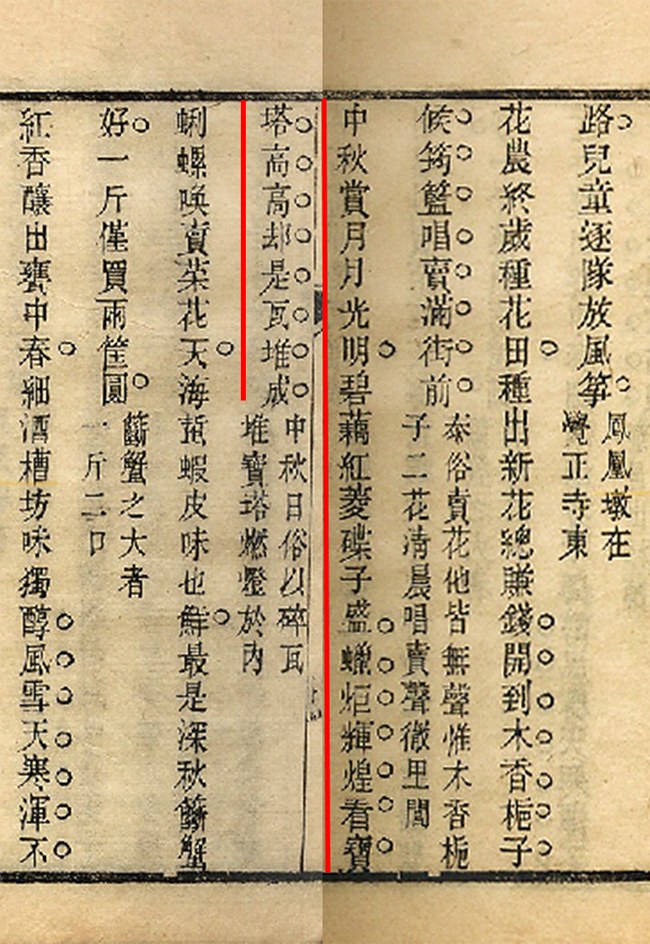 路兒童逐隊放風箏
鳳凰墩在
覺正寺東
花農終歲種花田種出新花總賺錢開到木香梔子
候筠籃唱賣滿街前
泰俗賣花他皆無聲惟木香梔
子二花清晨唱賣聲徹里閭
中秋賞月月光明碧藕紅菱碟子盛蠟炬輝煌看寶
塔高高却是瓦堆成
中秋日俗以碎瓦
堆寶塔燃燈於內
蜊螺喚賣菜花天海蜇蝦皮味也鮮最是深秋籪蟹
好一斤僅買兩筐圓
籪蟹之大者
一斤二口
紅香釀出甕中春細酒槽坊味獨醇風雪天寒渾不